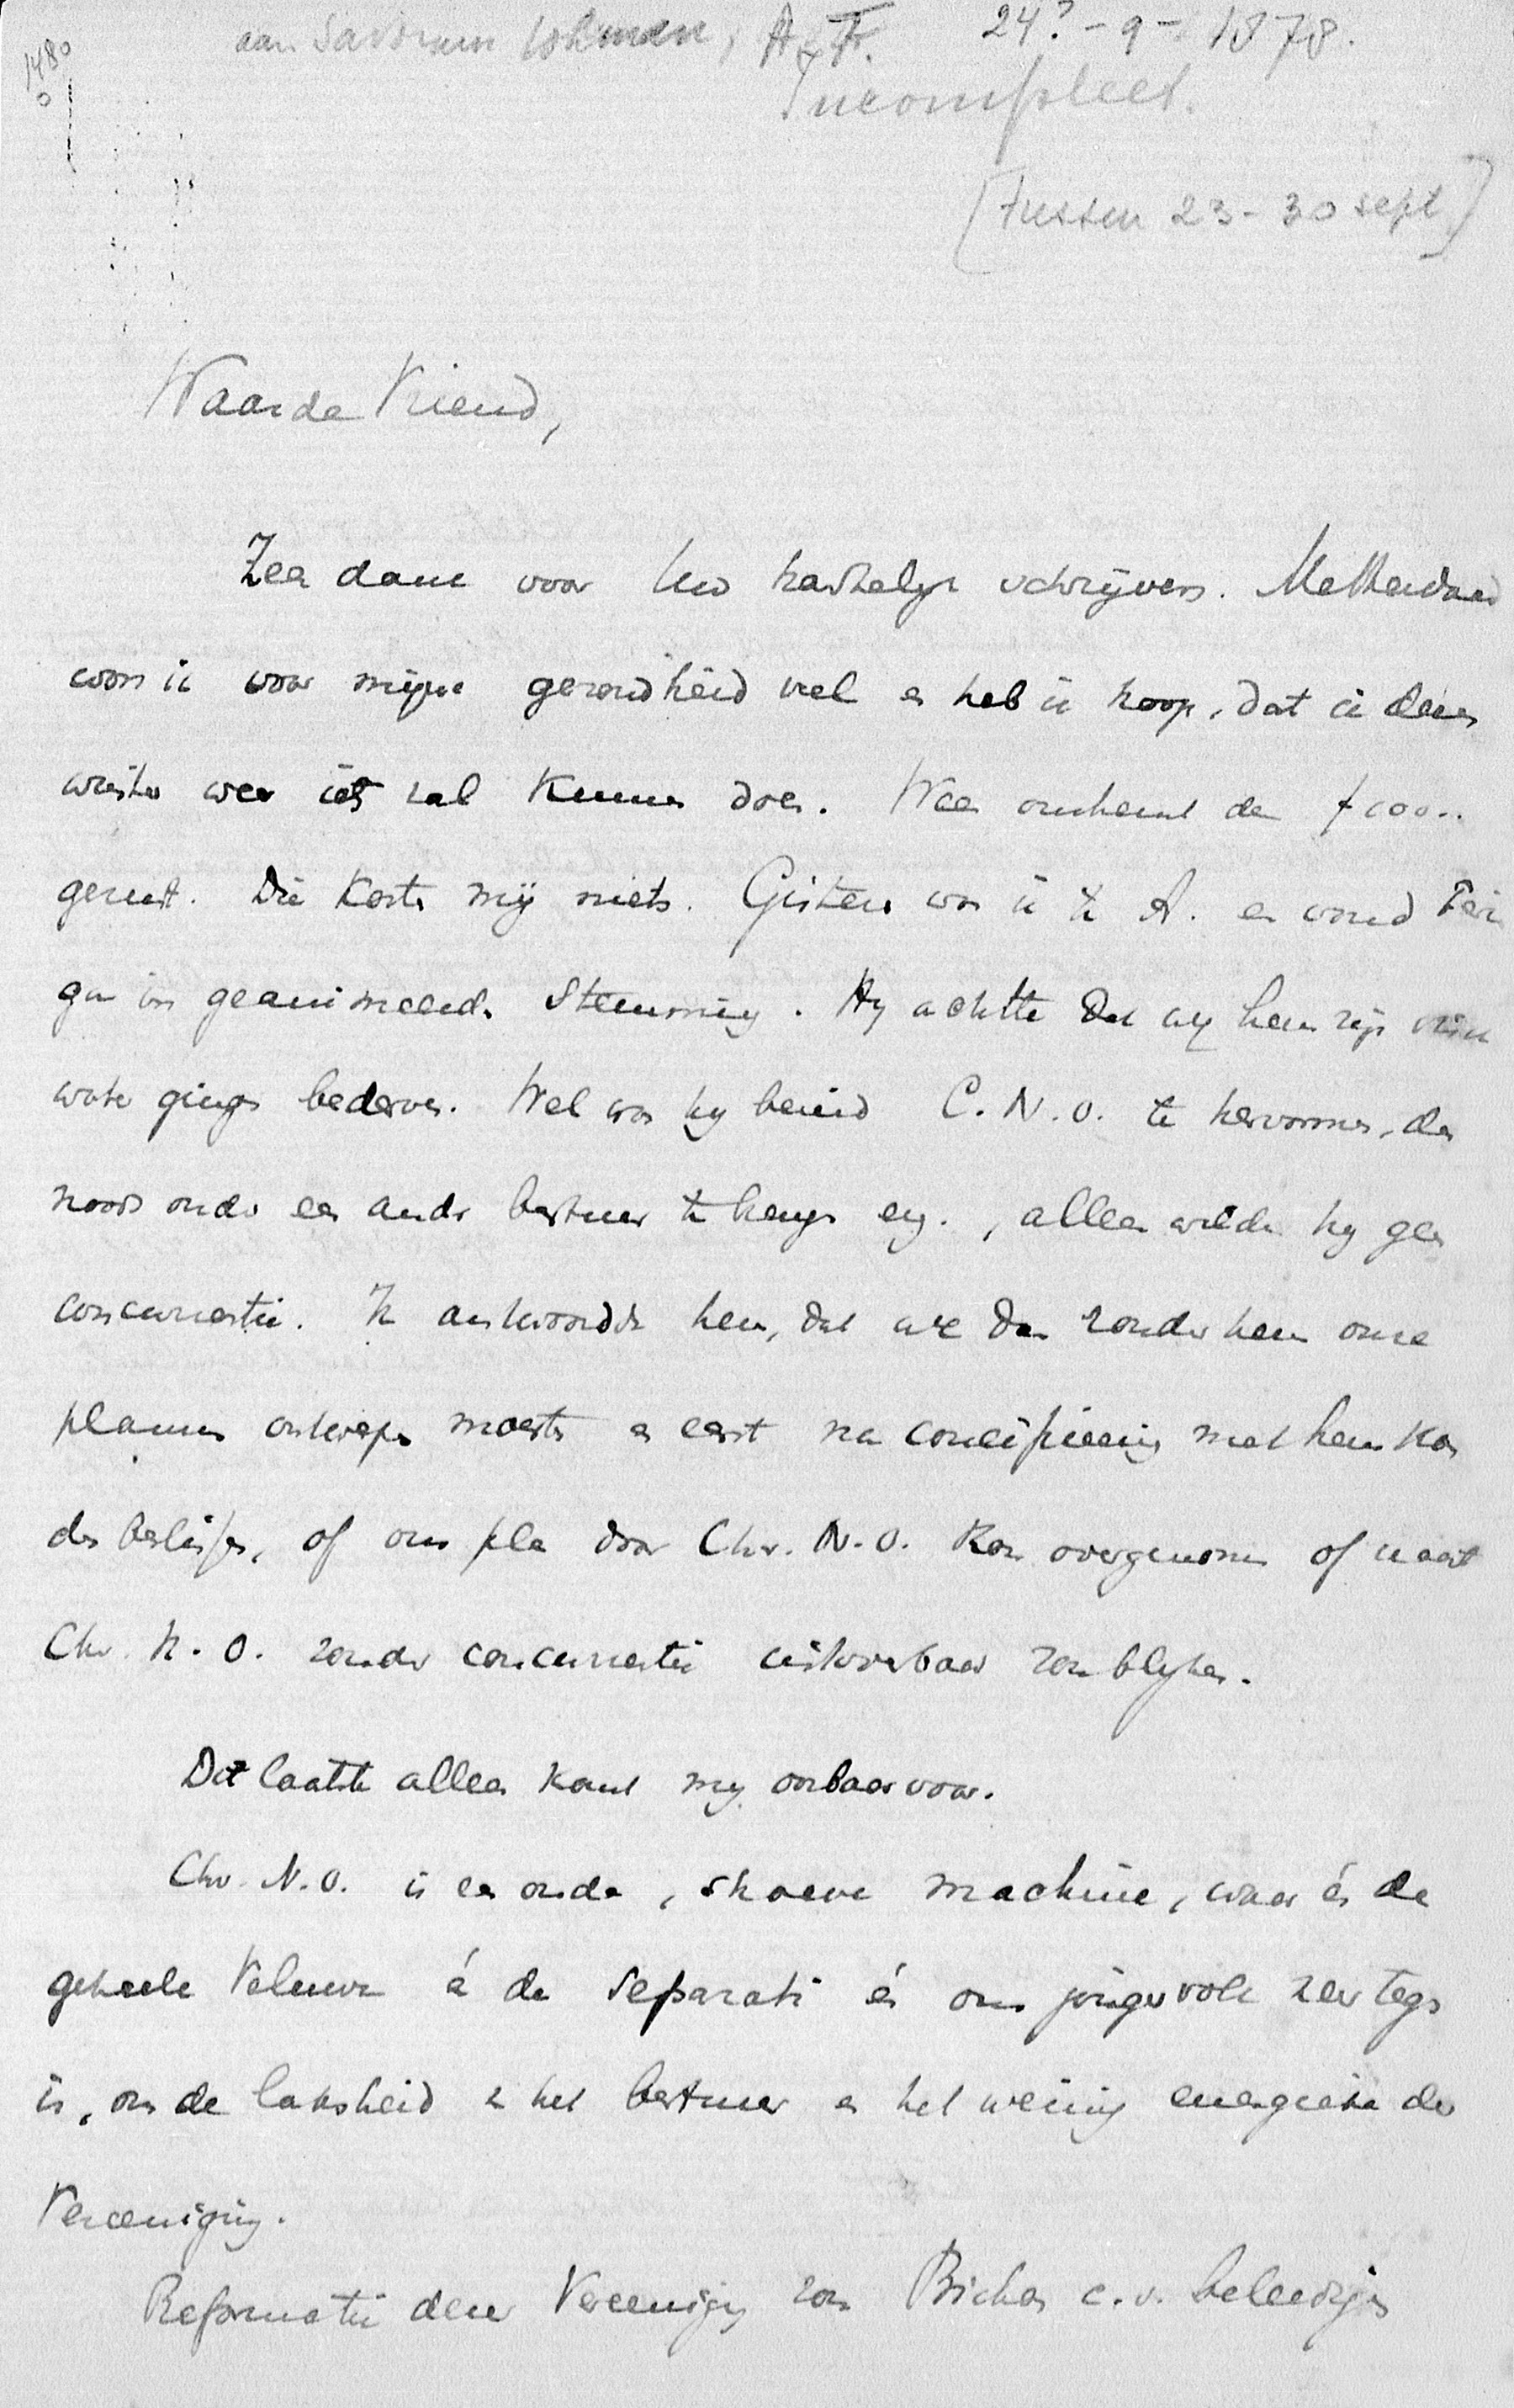 1480
aan Savornin Lohman, A.F. 24? - 9 - 1878.
Incompleet.
[tussen 23 - 30 sept]
Waarde Vriend,
Zeer dank voor Uw hartelijk schrijven. Metterdaad
won ik voor mijne gezondheid veel en heb ik hoop, dat ik dezen
winter weer iets zal kunnen doen. Wees omtrent de f 100..
gerust. Die kosten mij niets. Gisteren was ik te A. en vond Fer
ga in geanimeerde stemming. Hij achtte dat wij hem zijn
gingen bederven. Wel was hij bereid C.N.O. te hervormen, des
noods onder een ander bestuur te brengen enz., alleen wilde hij geen
concurrentie. Ik antwoordde hem, dat we dan zonder hem onze
plannen ontwerpen moesten en eerst na concipieering met hem kon
den beslissen, of ons plan door Chr. N.O. kon overgenomen of naast
Chr. N.O. zonder concurrentie uitvoerbaar zou blijken.
Dit laatste alleen komt mij oorbaar voor.
Chr. N.O. is een oude, stroeve machine, waar én de
geheele Veluwe én de Separatie én ons jonger volk zeer tegen
is, om de laksheid van het bestuur en het weinig energieke der
Vereeniging.
Reformatie dezer Vereeniging zou Bichon c.s. beleedigen